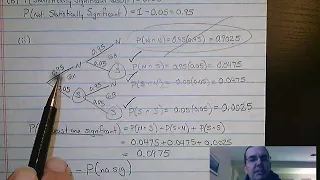 P(Not Statistically Significant) = 1 - 0.05 = 0.95
(ii)
0.95 N P(N ∩ N) = 0.95(0.95) = 0.9025
0.95 N
0.05 S P(N ∩ S) = 0.95(0.05) = 0.0475
0.05 S 0.95 N P(S ∩ N) = 0.05(0.95) = 0.0475
0.05 S P(S ∩ S) = 0.05(0.05) = 0.0025
least one significant) = P(N ∩ S) + P(S ∩ N) + P(S ∩ S)
= 0.0475 + 0.0475 + 0.0025
= 0.0975
- P(no sig)